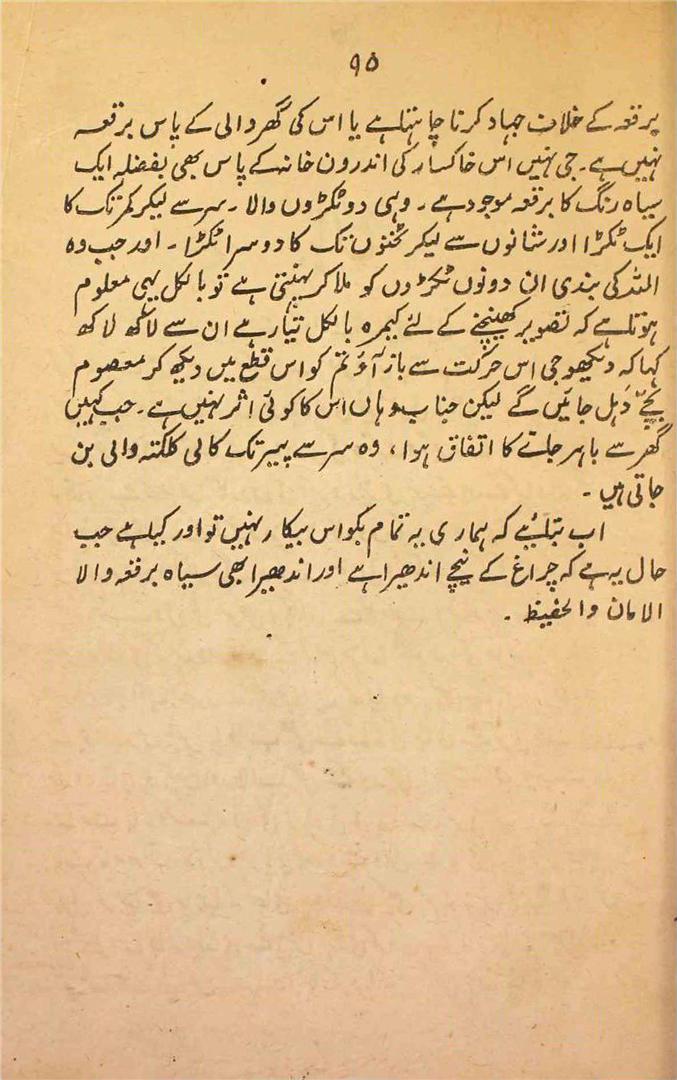 ۹۵
برقعہ کے خلاف جہاد کرنا چاہتا ہے یا اس کی گھر والی کے پاس برقعہ
نہیں ہے۔ جی نہیں اس خاکسار کی اندرون خانہ کے پاس بھی بفضلہ ایک
سیاہ رنگ کا برقعہ موجود ہے۔ وہی دو ٹکڑوں والا۔ سر سے لیکر کمر تک کا
ایک ٹکڑا اور شانوں سے لیکر ٹخنوں تک کا دوسرا ٹکڑا۔ اور جب وہ
اللہ کی بندی ان دونوں ٹکڑوں کو ملا کر پہنتی ہے تو بالکل یہی معلوم
ہوتا ہے کہ تصویر کھینچنے کے لئے کیمرہ بالکل تیار ہے ان سے لاکھ لاکھ
کہا کہ دیکھو جی اس حرکت سے باز آؤ تم کو اس قطع میں دیکھ کر معصوم
بچّے دَہل جائیں گے لیکن جناب وہاں اس کا کوئی اثر نہیں ہے۔ جب کہیں
گھر سے باہر جانے کا اتفاق ہوا، وہ سر سے پیر تک کالی کلکتہ والی بن
جاتی ہیں۔
اب بتلائیے کہ ہماری یہ تمام بکواس بیکار نہیں تو اور کیا ہے جب
حال یہ ہے کہ چراغ کے نیچے اندھیرا ہے اور اندھیرا بھی سیاہ برقعہ والا
الامان والحفیظ۔